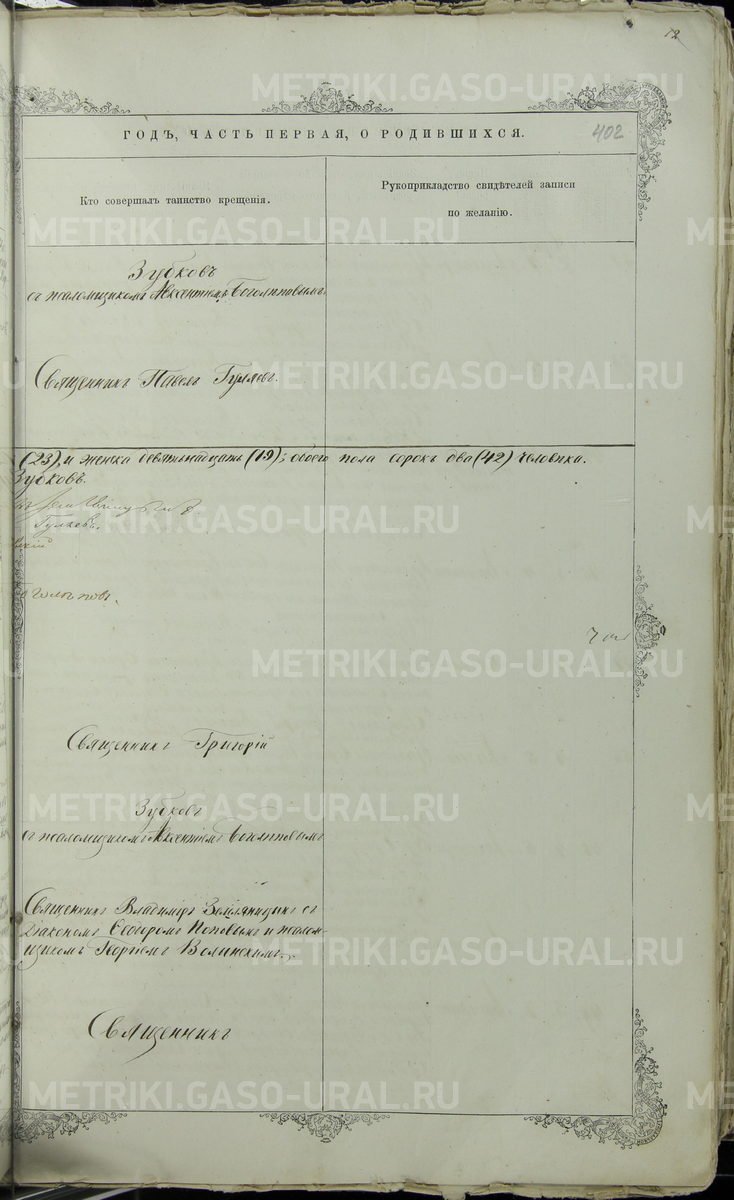 12
METRIKI.GASO-URAL.RU
ГОДЪ, ЧАСТЬ ПЕРВАЯ, О РОДИВШИХСЯ.
402
Кто совершалъ таинство крещенія.
Рукоприкладство свидѣтелей записи
по желанію.
Зубковъ
съ псаломщикомъ Авксентіемъ Боголѣповымъ.
Священникъ Павелъ Гуляевъ.
(23), и женска девятьнадцать (19); обоего пола сорокъ два (42) человѣка.
Зубковъ.
Гуляевъ.
Священникъ Григорій
Зубковъ
съ псаломщикомъ Авксентіемъ Боголѣповымъ
Священникъ Владиміръ Земляницынъ съ
Діакономъ Ѳеодоромъ Поповымъ и псалом-
щикомъ Георгіемъ Волынскимъ.
Священникъ